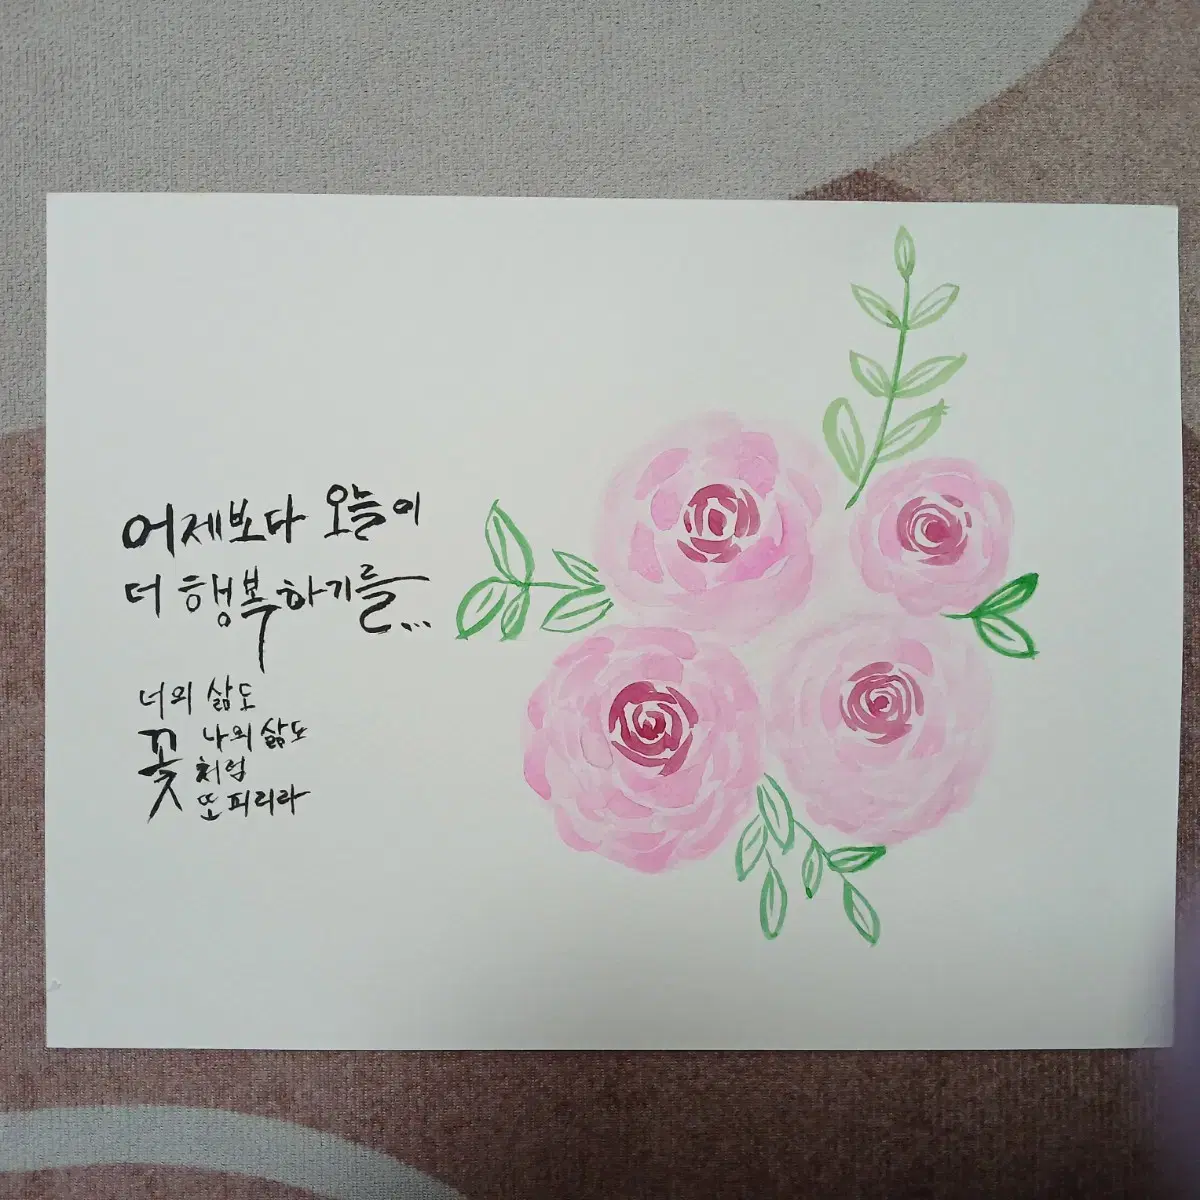 어제보다 오늘이
더 행복하기를...
너의 삶도
나의 삶도
꽃처럼
또 피리라